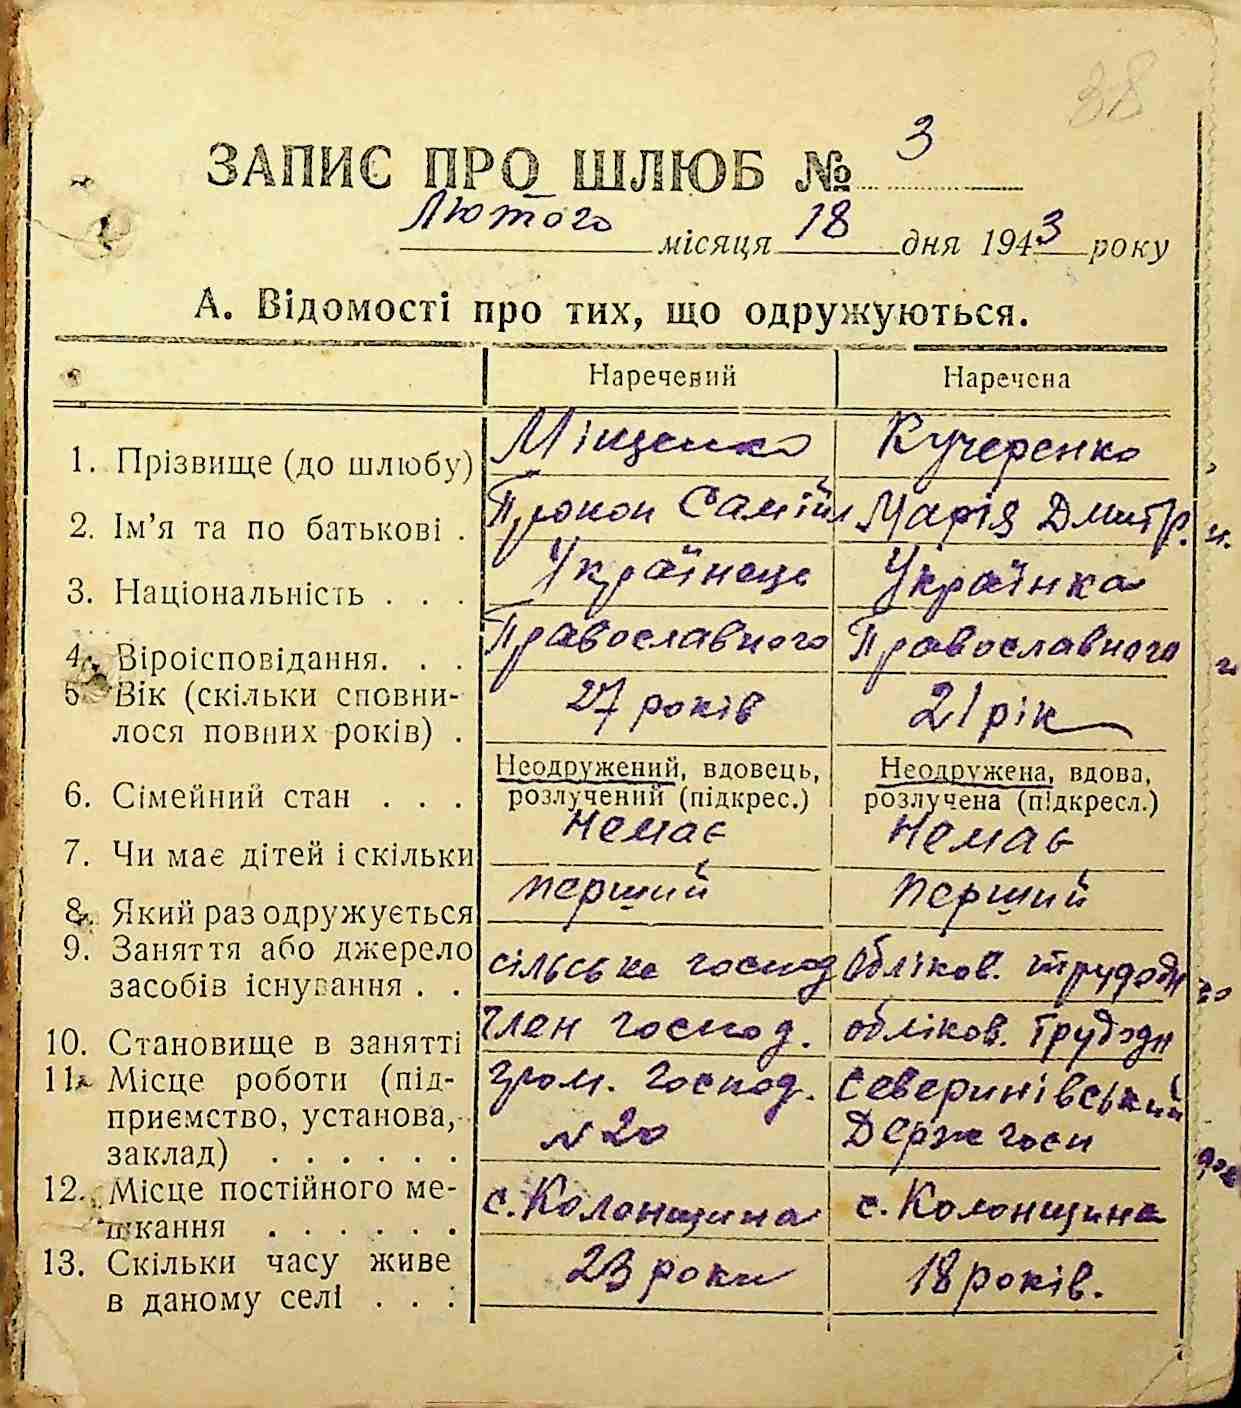 38
ЗАПИС ПРО ШЛЮБ № 3
Лютого місяця 18 дня 1943 року
А. Відомості про тих, що одружуються.
Наречений Наречена
1. Прізвище (до шлюбу) Міщенко Кучеренко
2. Ім'я та по батькові . Прокоп Самійл Марія Дмитр.
3. Національність . . . Українець Українка
4. Віроісповідання. . . Православного Православного
5 Вік (скільки сповни- 27 років 21 рік
лося повних років) .
Неодружений, вдовець, Неодружена, вдова,
6. Сімейний стан . . . розлучений (підкрес.) розлучена (підкресл.)
7. Чи має дітей і скільки Немає Немає
8. Який раз одружується перший перший
9. Заняття або джерело сільське господ обліков. трудодн
засобів існування . .
10. Становище в занятті член господ. обліков. трудодн
11. Місце роботи (під- гром. господ. Северинівський
приємство, установа, № 20 Держгосп
заклад) . . . . . .
12. Місце постійного ме- с. Колонщина с. Колонщина
шкання . . . . . .
13. Скільки часу живе 23 роки 18 років.
в даному селі . . .